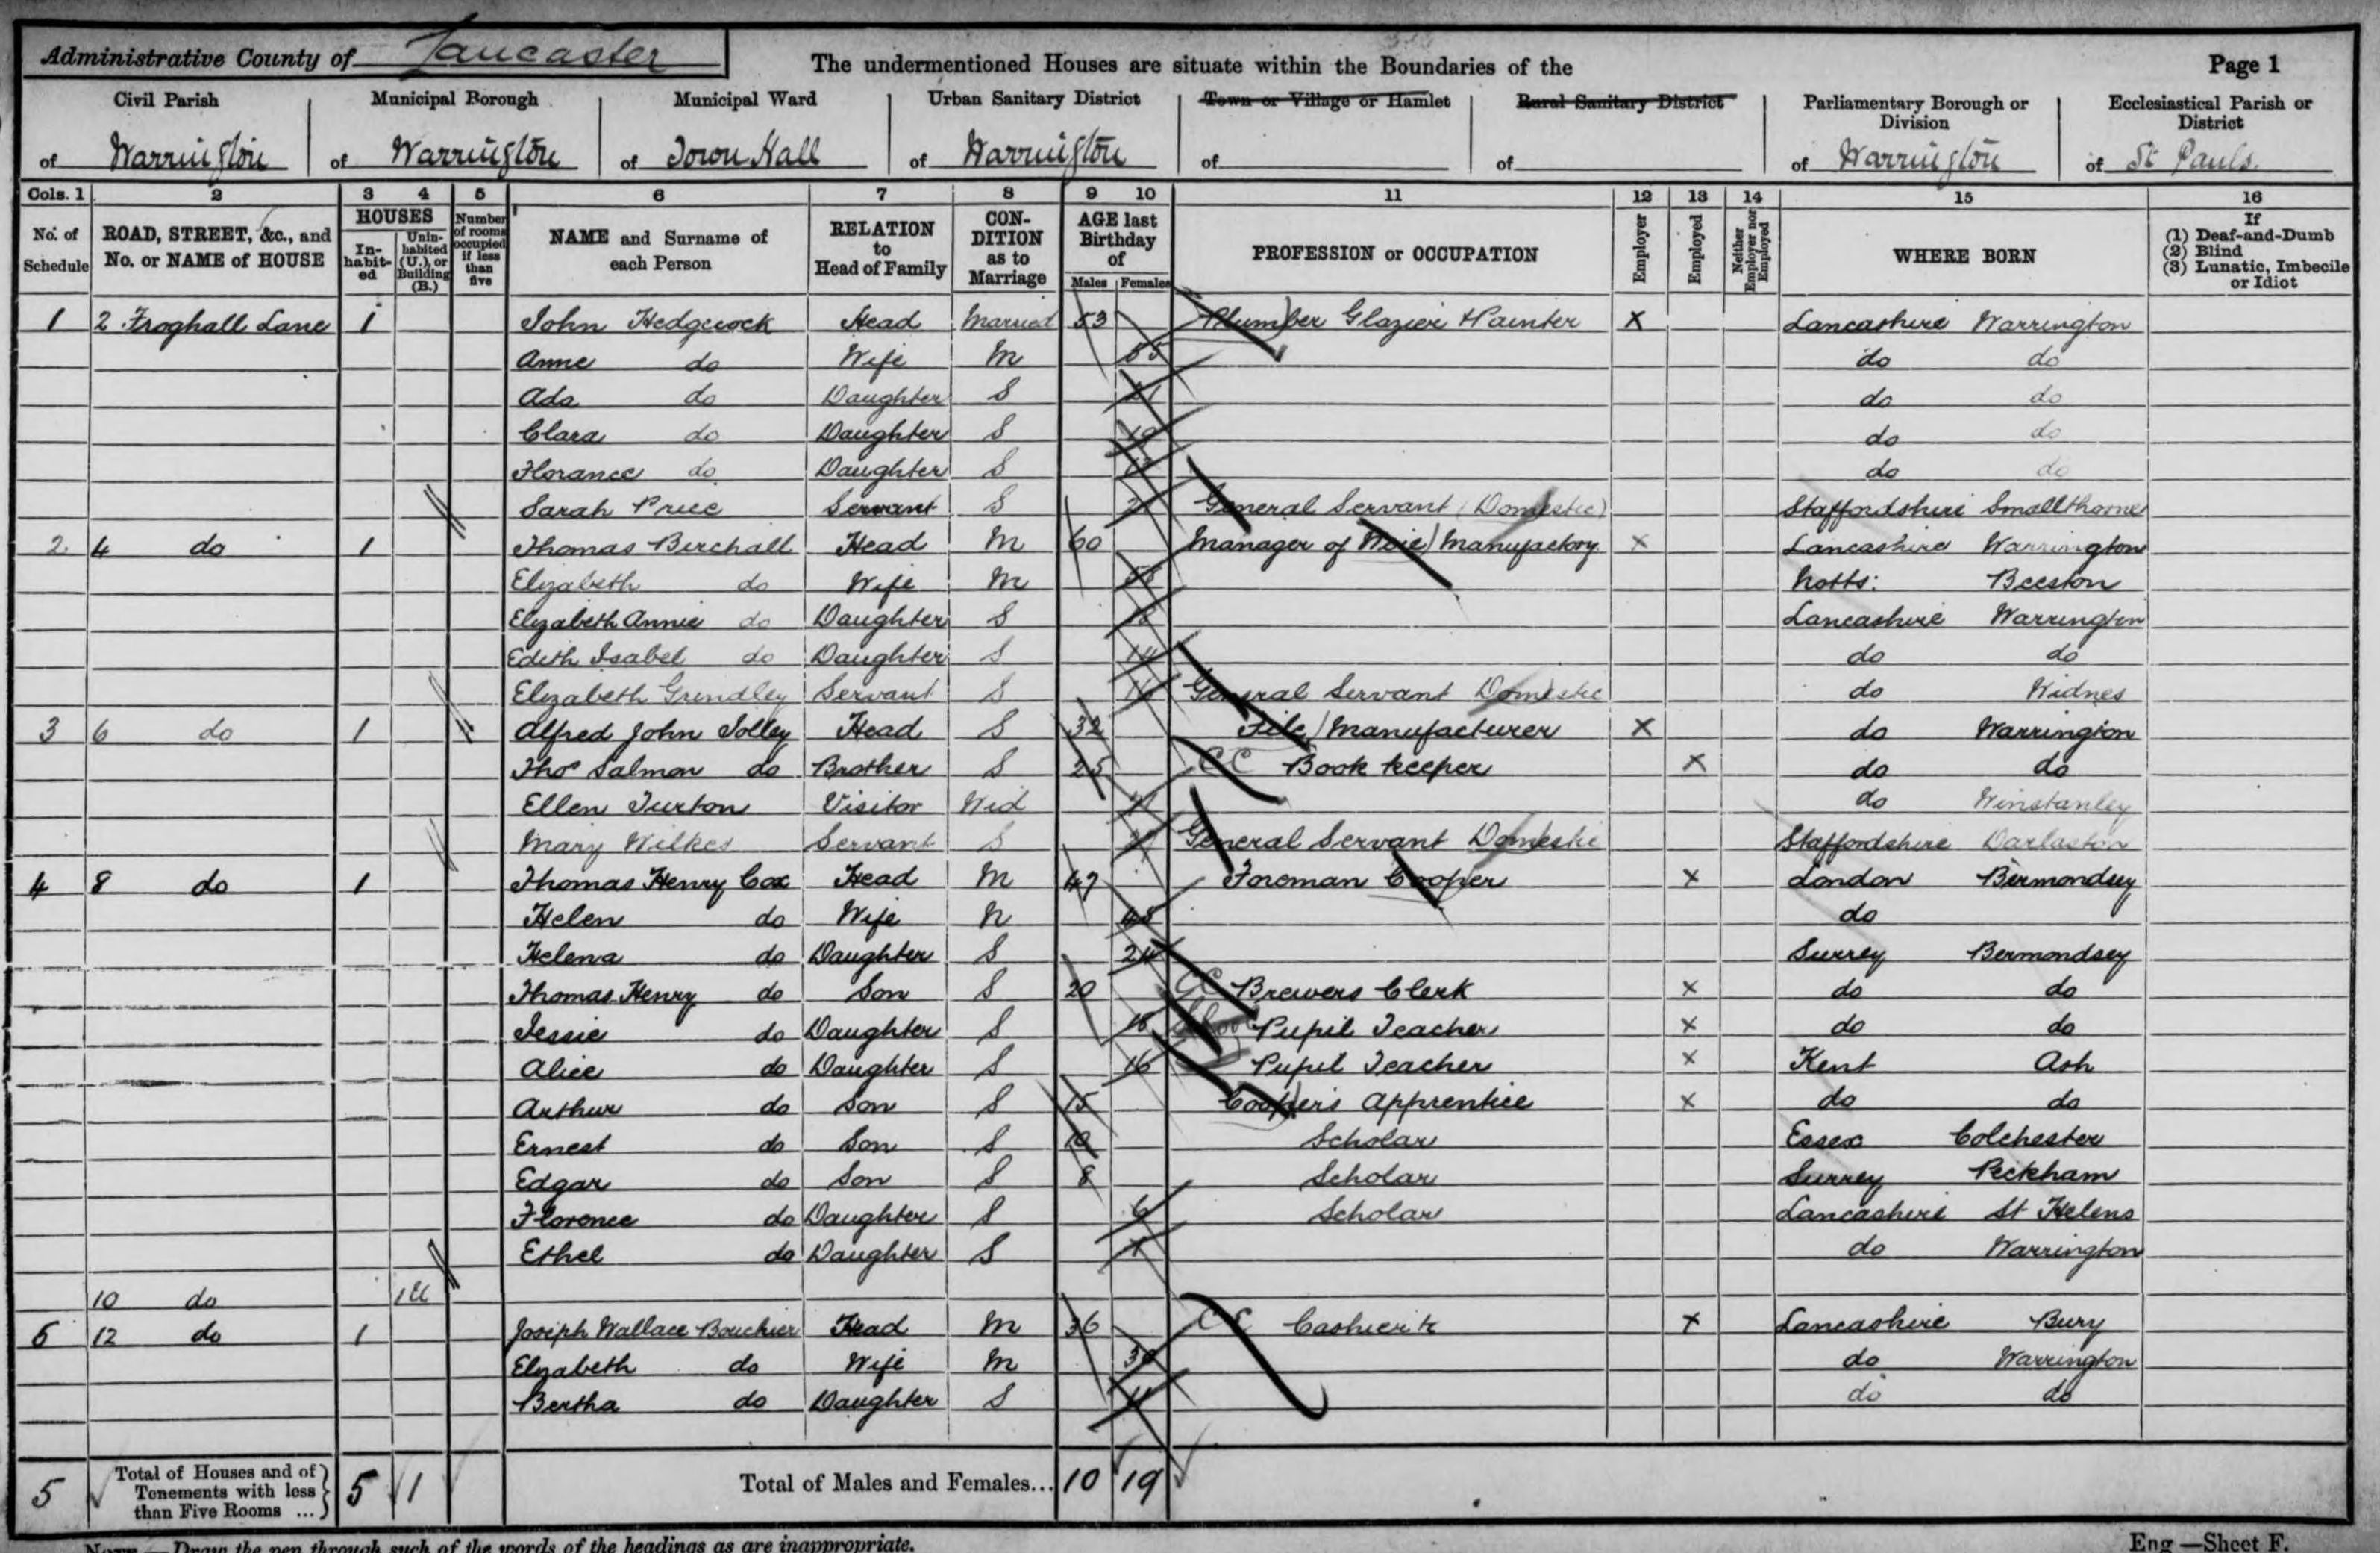 Administrative County of Lancaster
The undermentioned Houses are situate within the Boundaries of the
Page 1
Civil Parish of Warrington
Municipal Borough of Warrington
Municipal Ward of Town Hall
Urban Sanitary District of Warrington
Town or Village or Hamlet of
Rural Sanitary District of
Parliamentary Borough or Division of Warrington
Ecclesiastical Parish or District of St Pauls.
Cols. 1 2 3 4 5 6 7 8 9 10 11 12 13 14 15 16
No. of Schedule
ROAD, STREET, &c., and No. or NAME of HOUSE
HOUSES
In-habit-ed
Unin-habited (U.), or Building (B.)
Number of rooms occupied if less than five
NAME and Surname of each Person
RELATION to Head of Family
CON-DITION as to Marriage
AGE last Birthday of
Males Females
PROFESSION or OCCUPATION
Employer
Employed
Neither Employer nor Employed
WHERE BORN
If
(1) Deaf-and-Dumb
(2) Blind
(3) Lunatic, Imbecile or Idiot
1 2 Froghall Lane 1 John Hedgecock Head Married 53 Plumber Glazier & Painter X Lancashire Warrington
Anne do Wife M 55 do do
Ada do Daughter S 21 do do
Clara do Daughter S 19 do do
Florance do Daughter S do do
Sarah Price Servant S General Servant (Domestic) Staffordshire Smallthorne
2 4 do 1 Thomas Birchall Head M 60 Manager of Wire Manufactory X Lancashire Warrington
Elizabeth do Wife M Notts: Beeston
Elizabeth Annie do Daughter S 18 Lancashire Warrington
Edith Isabel do Daughter S 14 do do
Elizabeth Grindley Servant S General Servant Domestic do Widnes
3 6 do 1 Alfred John Jolley Head S 32 File Manufacturer X do Warrington
Thos Salmon do Brother S 25 CC Book keeper X do do
Ellen Turton Visitor Wid do Winstanley
Mary Wilkes Servant S General Servant Domestic Staffordshire Darlaston
4 8 do 1 Thomas Henry Cox Head M 47 Foreman Cooper X London Bermondsey
Helen do Wife M 48 do
Helena do Daughter S 24 Surrey Bermondsey
Thomas Henry do Son S 20 CC Brewers Clerk X do do
Jessie do Daughter S 18 School Pupil Teacher X do do
Alice do Daughter S 16 Pupil Teacher X Kent Ash
Arthur do Son S 15 Cooper's Apprentice X do do
Ernest do Son S 10 Scholar Essex Colchester
Edgar do Son S 8 Scholar Surrey Peckham
Florence do Daughter S 6 Scholar Lancashire St Helens
Ethel do Daughter S do Warrington
10 do 1U
5 12 do 1 Joseph Wallace Bouchier Head M 36 CC Cashier X Lancashire Bury
Elizabeth do Wife M do Warrington
Bertha do Daughter S do do
5 Total of Houses and of Tenements with less than Five Rooms ... 5 1 Total of Males and Females... 10 19
NOTE.—Draw the pen through such of the words of the headings as are inappropriate.
Eng—Sheet F.